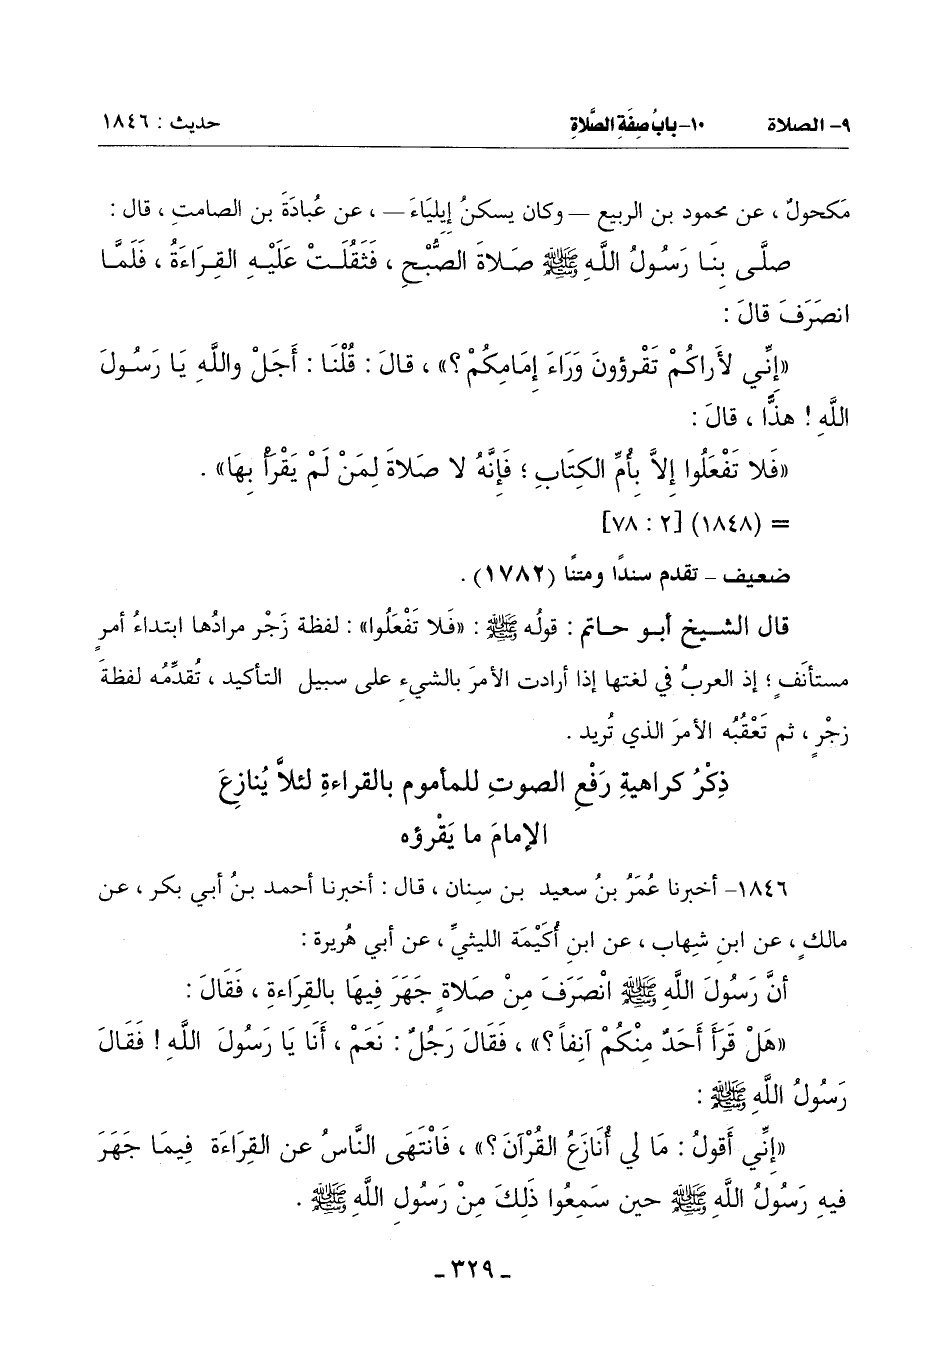 ٩- الصلاة ١٠- بابُ صِفَةِ الصَّلاةِ حديث : ١٨٤٦
مَكحولٌ ، عن محمود بن الربيع – وكان يسكنُ إِيلِيَاءَ – ، عن عُبادَةَ بن الصامتِ ، قال :
صلَّى بِنَا رَسُولُ اللَّهِ ﷺ صَلاةَ الصُّبْحِ ، فَثَقُلَتْ عَلَيْهِ القِرَاءَةُ ، فَلَمَّا
انصَرَفَ قالَ :
«إِنِّي لأَرَاكُمْ تَقْرؤونَ وَرَاءَ إِمَامِكُمْ ؟» ، قالَ : قُلْنَا : أَجَلْ واللَّهِ يَا رَسُولَ
اللَّهِ ! هذًّا ، قالَ :
«فَلا تَفْعَلُوا إِلاَّ بِأُمِّ الكِتَابِ ؛ فَإِنَّهُ لا صَلاةَ لِمَنْ لَمْ يَقْرَأْ بِهَا» .
= (١٨٤٨) [٢ : ٧٨]
ضعيف – تقدم سندًا ومتنًا (١٧٨٢) .
قال الشيخ أبو حاتم : قولُه ﷺ : «فَلا تَفْعَلُوا» : لفظة زَجْر مرادُها ابتداءُ أمرٍ
مستأنَفٍ ؛ إذ العربُ في لغتها إذا أرادت الأمرَ بالشيءِ على سبيل التأكيد ، تُقدِّمُه لفظةَ
زجْرٍ ، ثم تَعْقُبُه الأمرَ الذي تُريد .
ذِكْرُ كراهيةِ رَفْعِ الصوتِ للمأموم بالقراءةِ لئلاَّ يُنازِعَ
الإمامَ ما يَقْرؤه
١٨٤٦- أخبرنا عُمَرُ بنُ سعيد بن سِنان ، قال : أخبرنا أحمد بنُ أبي بكر ، عن
مالكٍ ، عن ابنِ شِهاب ، عن ابنِ أُكَيْمَة الليثيِّ ، عن أبي هُريرة :
أنَّ رَسُولَ اللَّهِ ﷺ انْصَرَفَ مِنْ صَلاةٍ جَهَرَ فِيهَا بالقِرَاءةِ ، فَقَالَ :
«هَلْ قَرَأَ أَحَدٌ مِنْكُمْ آنِفاً ؟» ، فَقَالَ رَجُلٌ : نَعَمْ ، أَنَا يَا رَسُولَ اللَّهِ ! فَقَالَ
رَسُولُ اللَّهِ ﷺ :
«إِنِّي أَقولُ : مَا لِي أُنَازَعُ القُرْآنَ ؟» ، فَانْتَهَى النَّاسُ عن القِرَاءَةِ فِيمَا جَهَرَ
فيهِ رَسُولُ اللَّهِ ﷺ حين سَمِعُوا ذَلِكَ مِنْ رَسُولِ اللَّهِ ﷺ .
- ٣٢٩ -